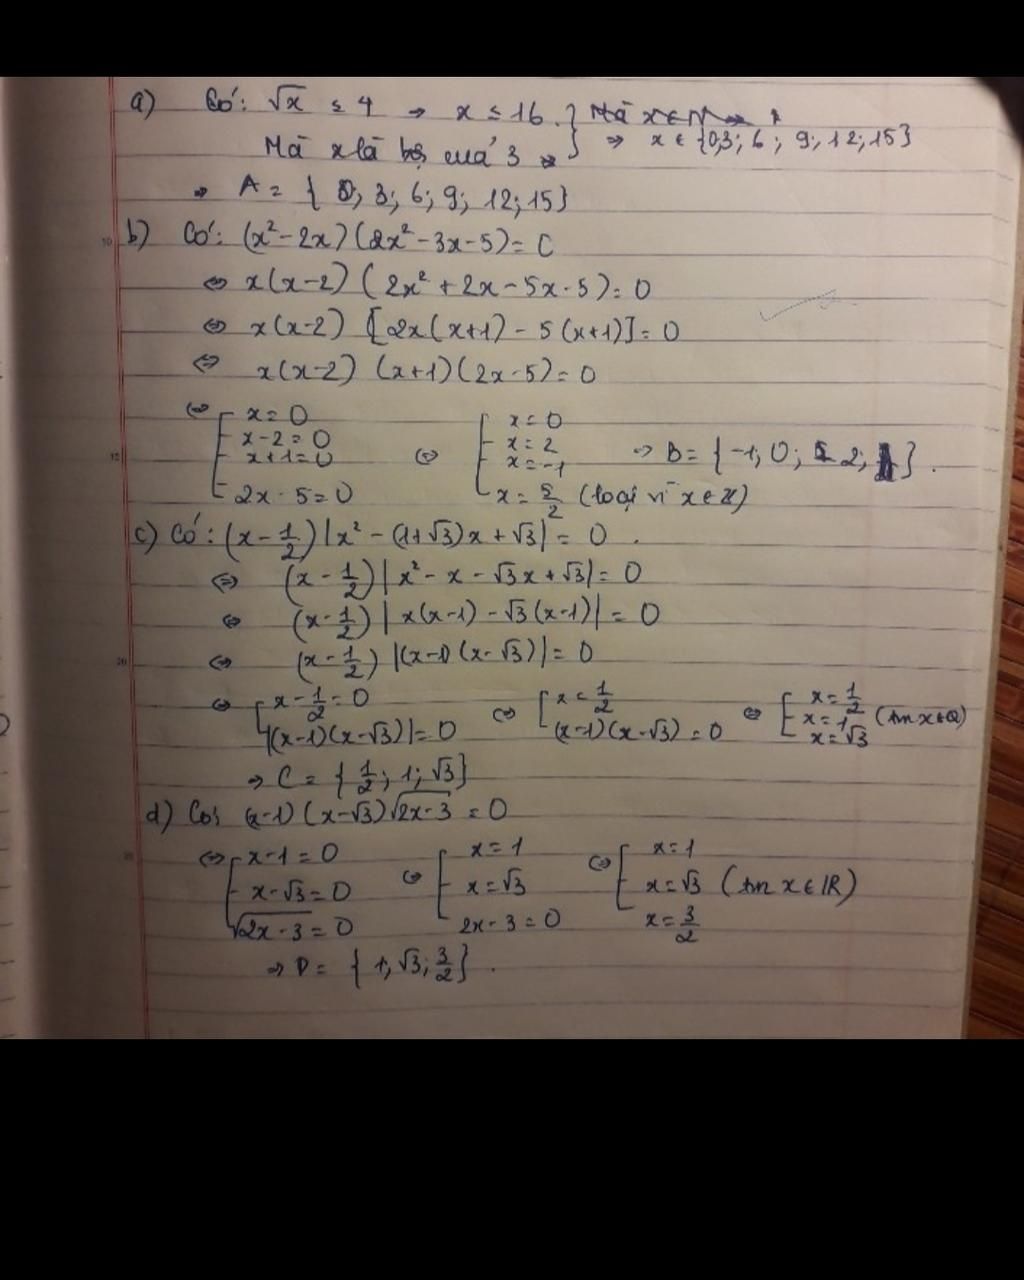 a) Có: √x ≤ 4 → x ≤ 16. } Mà x∈N
Mà x là bộ cuả 3 } ⇒ x ∈ {0,3; 6; 9; 12; 15}
⇒ A = { 0; 3; 6; 9; 12; 15}
b) Có: (x² - 2x)(2x² - 3x - 5) = 0
⇔ x(x-2) (2x² + 2x - 5x - 5) = 0
⇔ x(x-2) [2x(x+1) - 5(x+1)] = 0
⇔ x(x-2) (x+1)(2x-5) = 0
⇔ [ x = 0 ⇔ [ x = 0
x - 2 = 0 x = 2
x + 1 = 0 x = -1 ⇒ B = {-1; 0; 2; }.
2x - 5 = 0 x = 5/2 (loại vì x ∈ Z)
c) Có: (x - 1/2) |x² - (1+√3)x + √3| = 0.
⇔ (x - 1/2) | x² - x - √3x + √3| = 0
⇔ (x - 1/2) | x(x-1) - √3(x-1) | = 0
⇔ (x - 1/2) |(x-1)(x-√3)| = 0
⇔ [ x - 1/2 = 0 ⇔ [ x = 1/2 ⇔ [ x = 1/2
|(x-1)(x-√3)| = 0 (x-1)(x-√3) = 0 x = 1 (tm x∈Q)
x = √3
⇒ C = { 1/2; 1; √3}
d) Có: (x-1)(x-√3)√2x-3 = 0
⇔ [ x - 1 = 0 ⇔ [ x = 1 ⇔ [ x = 1
x - √3 = 0 x = √3 x = √3 (tm x ∈ R)
√2x - 3 = 0 2x - 3 = 0 x = 3/2
⇒ D = { 1; √3; 3/2}.